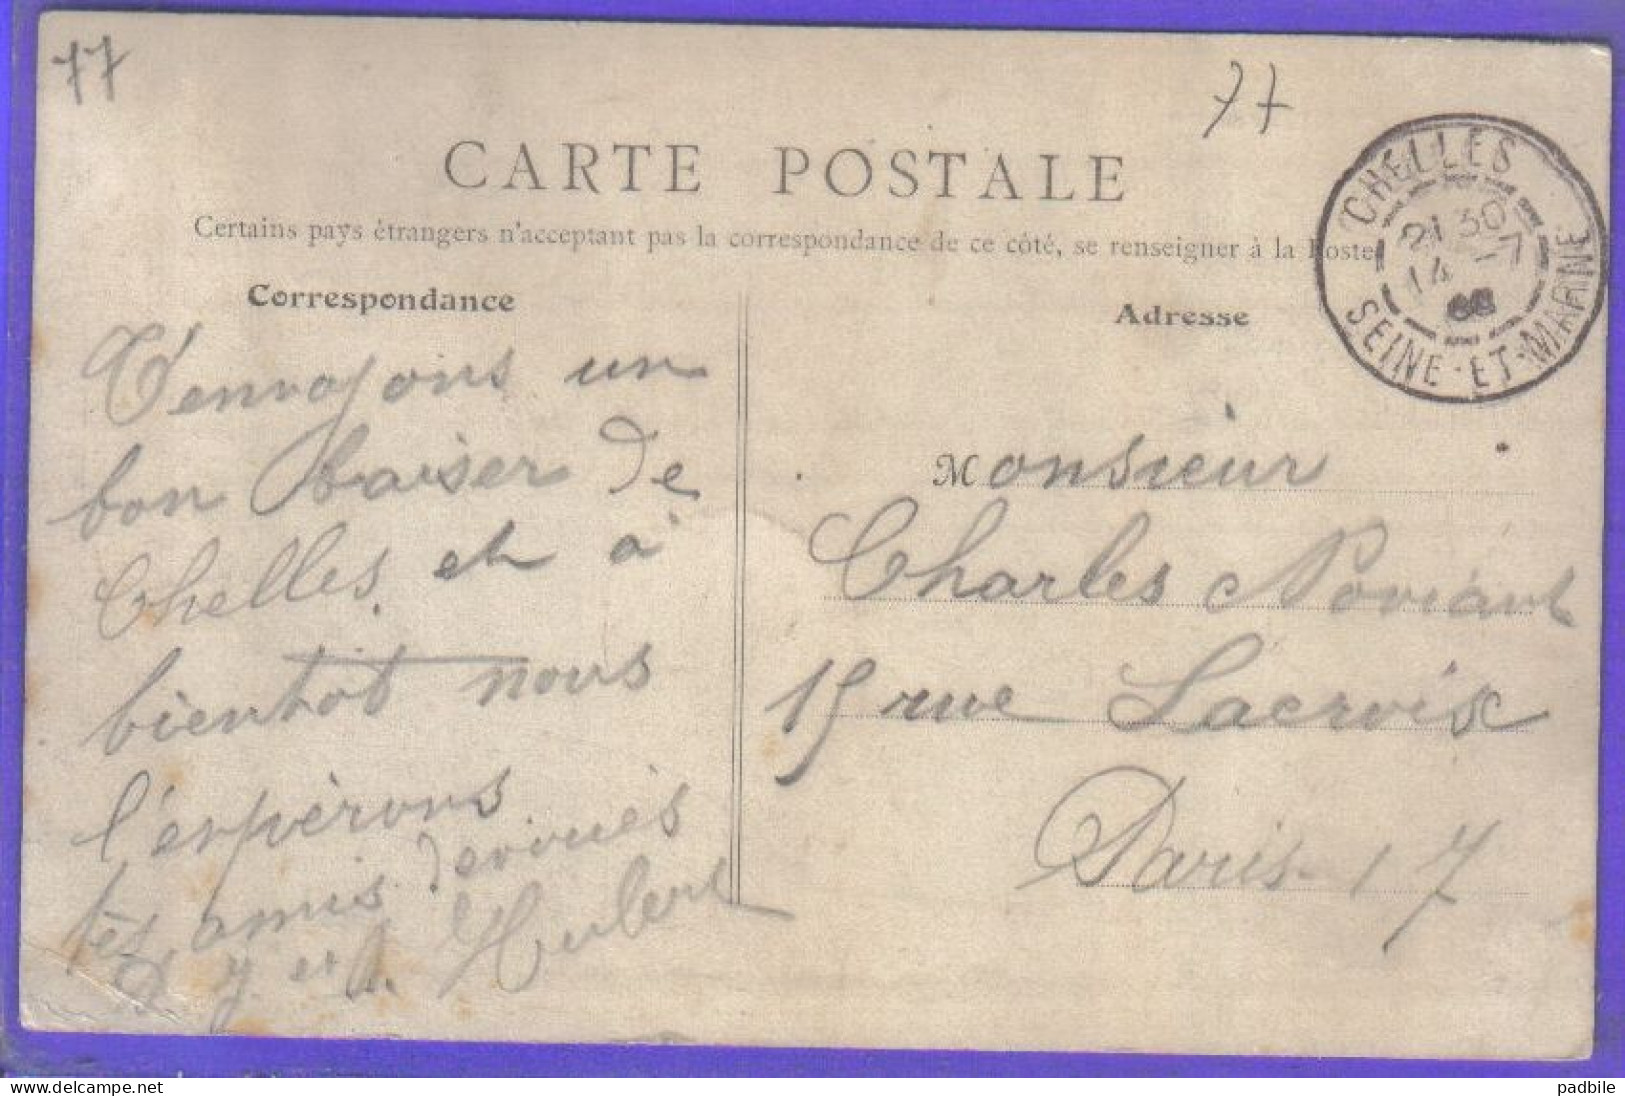 77
77
CARTE POSTALE
Certains pays étrangers n'acceptant pas la correspondance de ce côté, se renseigner à la Poste
CHELLES
21 30
14 -7
SEINE-ET-MARNE
Correspondance
T'envoyons un
bon baiser de
Chelles et à
bientôt nous
l'espérons
tes amis dévoués
y et h. Hubert
Adresse
Monsieur
Charles Noviant
15 rue Lacroix
Paris-17
www.delcampe.net
padbile